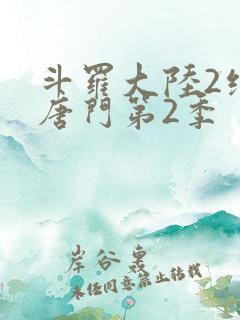 斗羅大陸2
唐門第2季
岸谷東
未经同意禁止转载